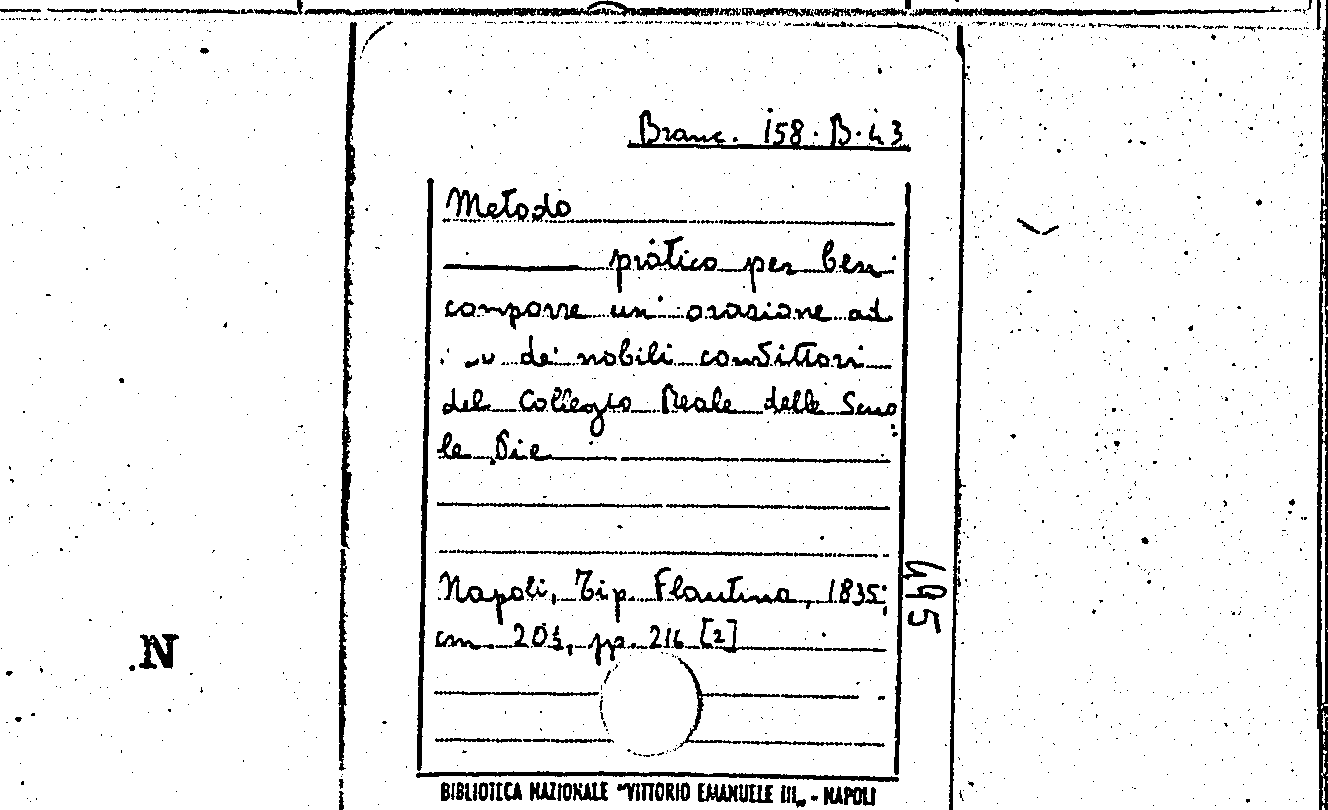 Branc. 158. B. 43
Metodo
pratico per ben
comporre un' orazione ad
de' nobili convittori
del Collegio Reale delle Scuo
le Pie
Napoli, Tip. Flautina, 1835;
cm. pp. 216 [2]
495
N
BIBLIOTECA NAZIONALE "VITTORIO EMANUELE III„ - NAPOLI